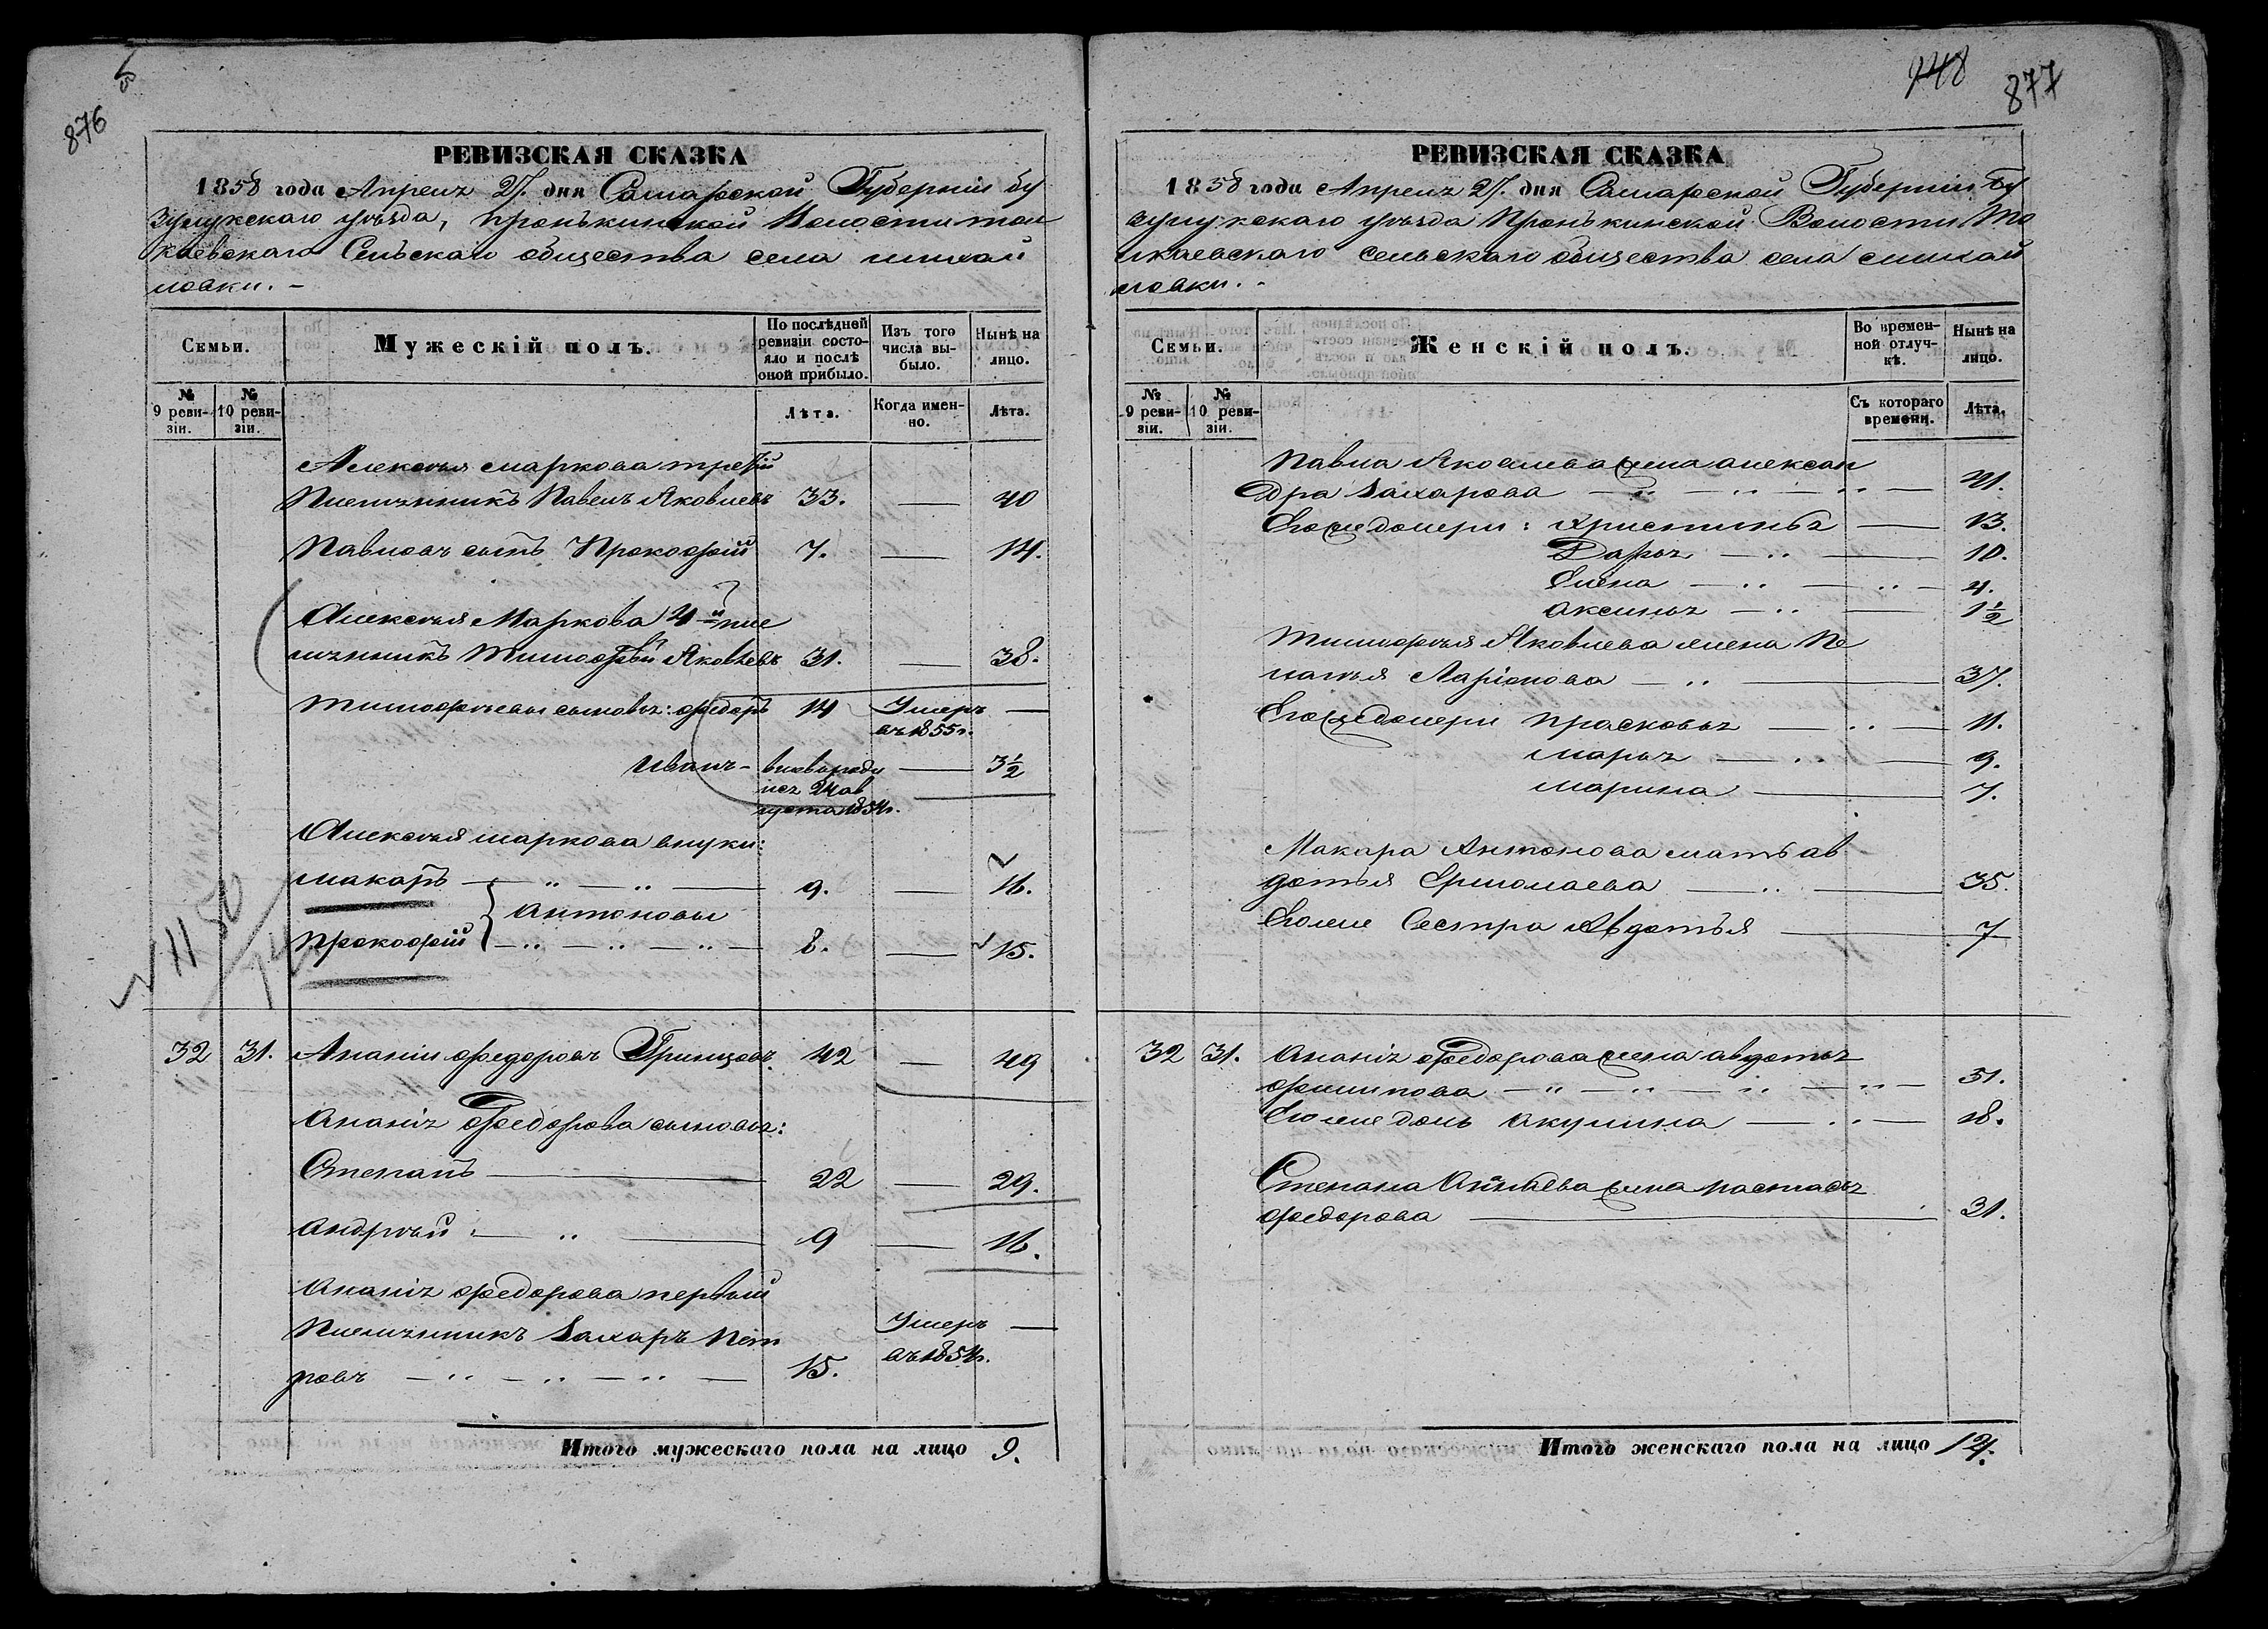 876
5
РЕВИЗСКАЯ СКАЗКА
1858 года Апреля 27. дня Самарской Губерніи бу
зулукскаго уѣзда, Пронькинской Волости ток
каевскаго Сельскаго общества села михай
ловки. -
Семьи.
Мужескій полъ.
По послѣдней ревизіи состояло и послѣ оной прибыло.
Изъ того числа выбыло.
Нынѣ на лицо.
№ 9 ревизіи.
№ 10 ревизіи.
Лѣта.
Когда именно.
Лѣта.
Алексѣя маркова третій
Племянникъ Павелъ Яковлевъ 33. — 40
Павловъ сынъ Прокофій 7. — 14.
Алексѣя Маркова 4й пле
мянникъ Тимофѣй Яковлевъ 31. — 38.
Тимофѣевы сыновья: федоръ 14 Умеръ въ 1855г. —
Иванъ - вновь роди лся 24 ав густа 1854г. — 3½
Алексѣя маркова внуки:
макаръ 9. — 16.
Антоновы
Прокофій 8. — 15.
1150
32 31. Ананій федоровъ Грищовъ 42 — 49
Ананія Федорова сыновья:
Степанъ 22 — 29.
Андрѣй 9 — 16.
Ананія федорова первый
Племянникъ Захаръ Пет
ровъ 15. Умеръ въ 1854г. —
Итого мужескаго пола на лицо 9.
948
877
РЕВИЗСКАЯ СКАЗКА
1858 года Апреля 27. дня Самарской Губерніи Бу
зулукскаго уѣзда Пронькинской Волости То
цкаевскаго сельскаго общества села михай
ловки. -
Семьи.
Женскій полъ.
Во временной отлучкѣ.
Нынѣ на лицо.
№ 9 ревизіи.
№ 10 ревизіи.
Съ котораго времени.
Лѣта.
Павла Яковлева жена алексан
дра Захарова 41.
Егоже дочери: Христинья 13.
Дарья 10.
Елена 4.
Аксинья 1½
Тимофѣя Яковлева жена Пе
лагѣя Ларіонова 37.
Егоже дочери Прасковья 11.
марья 9.
марина 7.
Макара Антонова мать ав
дотья Ермолаева 35.
Егоже Сестра Авдотья 7
32 31. Ананія Федорова жена авдотья
филипова 51.
Егоже дочь Акулина 18.
Степана Ананьева жена настасья
федорова 31.
Итого женскаго пола на лицо 14.